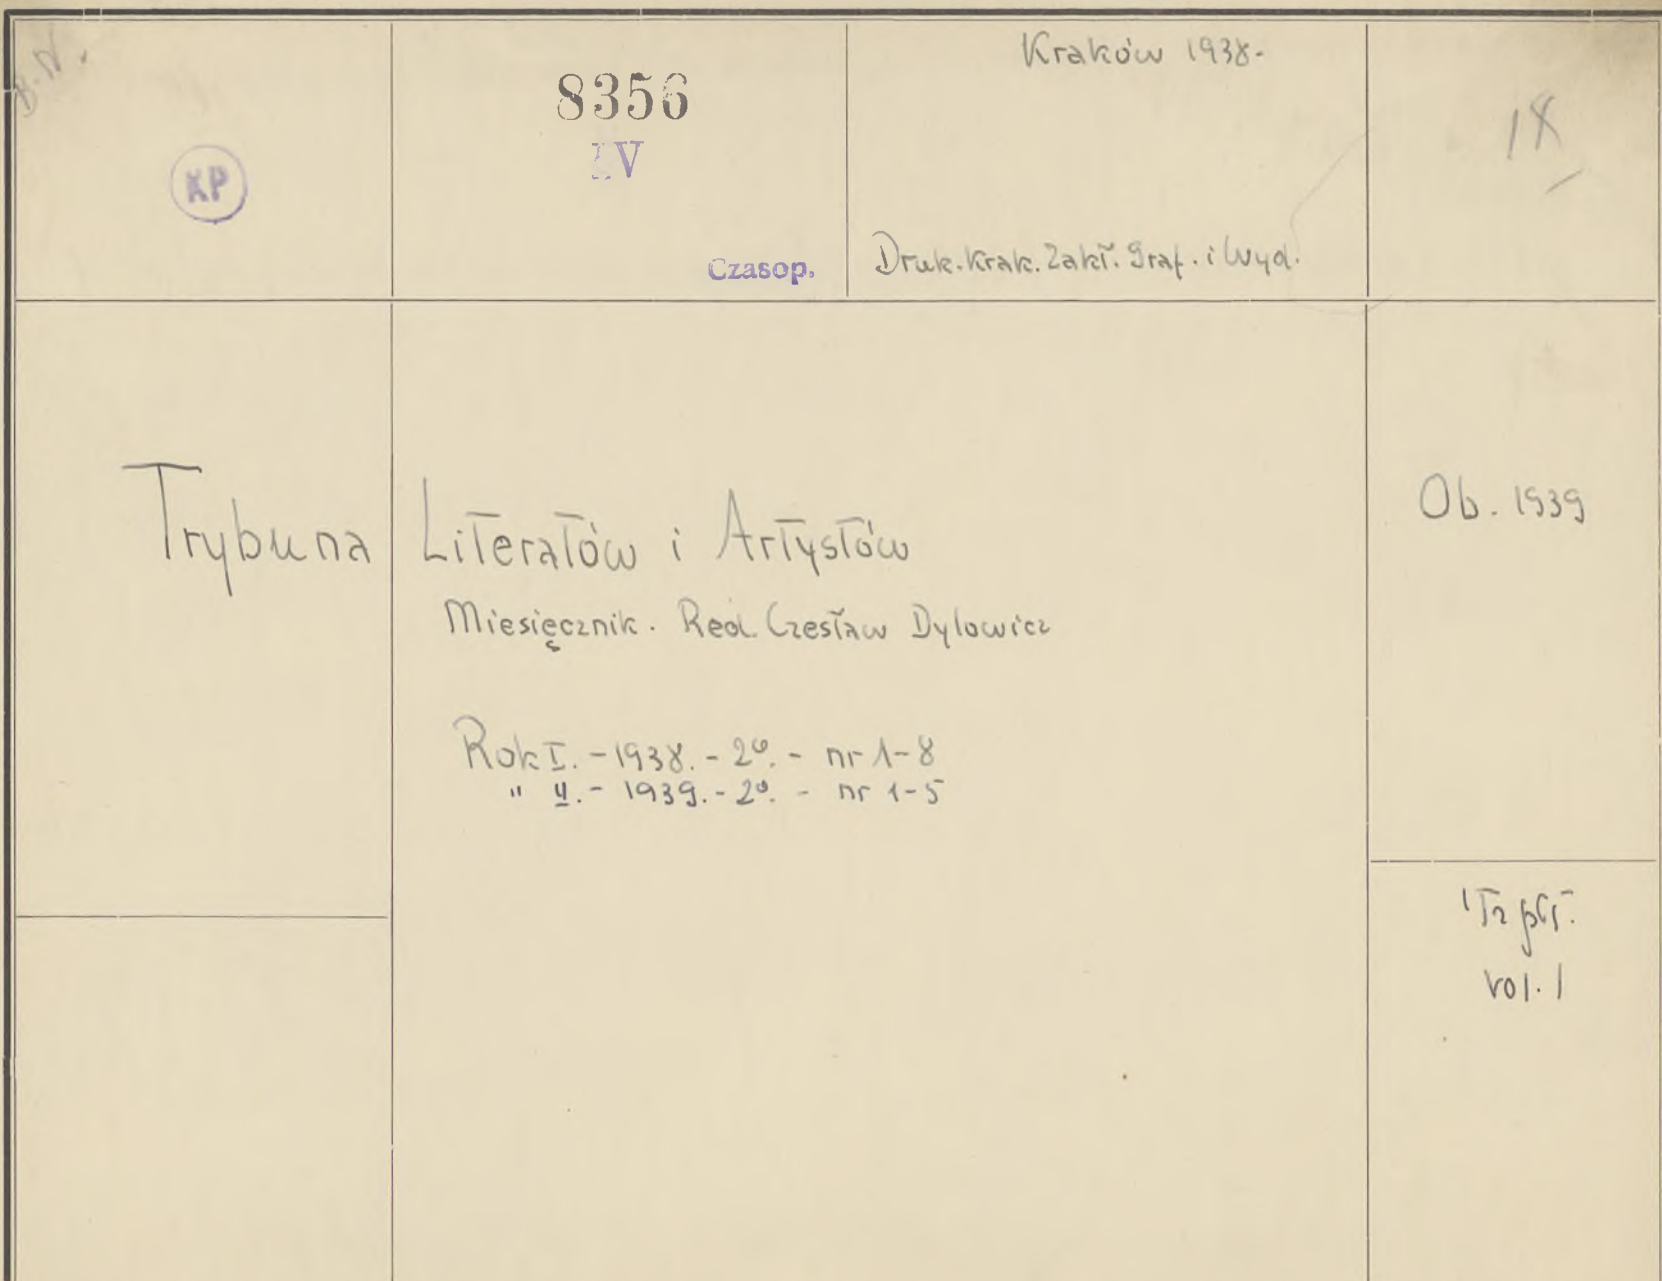 B.N.
KP
8356
IV
Czasop.
Kraków 1938-
Druk. Krak. Zakł. Graf. i Wyd.
18
Trybuna Literatów i Artystów
Miesięcznik. Red. Czesław Dylowicz
Rok I. - 1938. - 2º. - nr 1-8
" II. - 1939. - 2º. - nr 1-5
Ob. 1939
vol. 1